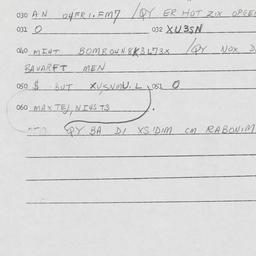 030 AN 04FRI.FM7 /QY ER HOT ZIX OPGE
031 O 032 XU3SN
040 MEHT BOMROWN8K3L73X /QY NOX D
BAVARFT MEN
050 $ BUT XU,SVMU.L 051 O
060 MAXTEJ,NI4STS
QY BA DI XS'DIM CM RABONIM